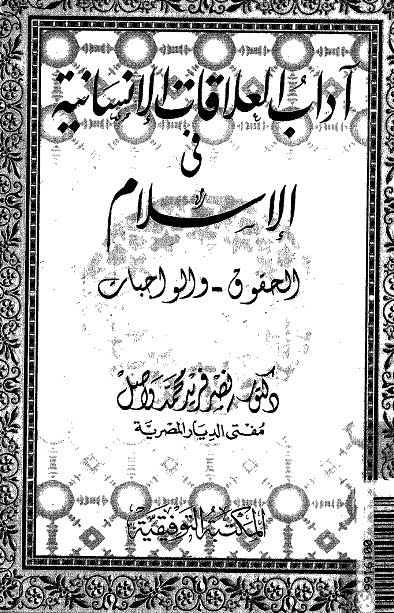 آداب العلاقات الإنسانية
فى
الإسلام
الحقوق - والواجبات
دكتور نصر فريد محمد واصل
مفتى الديار المصرية
المكتبة التوفيقية